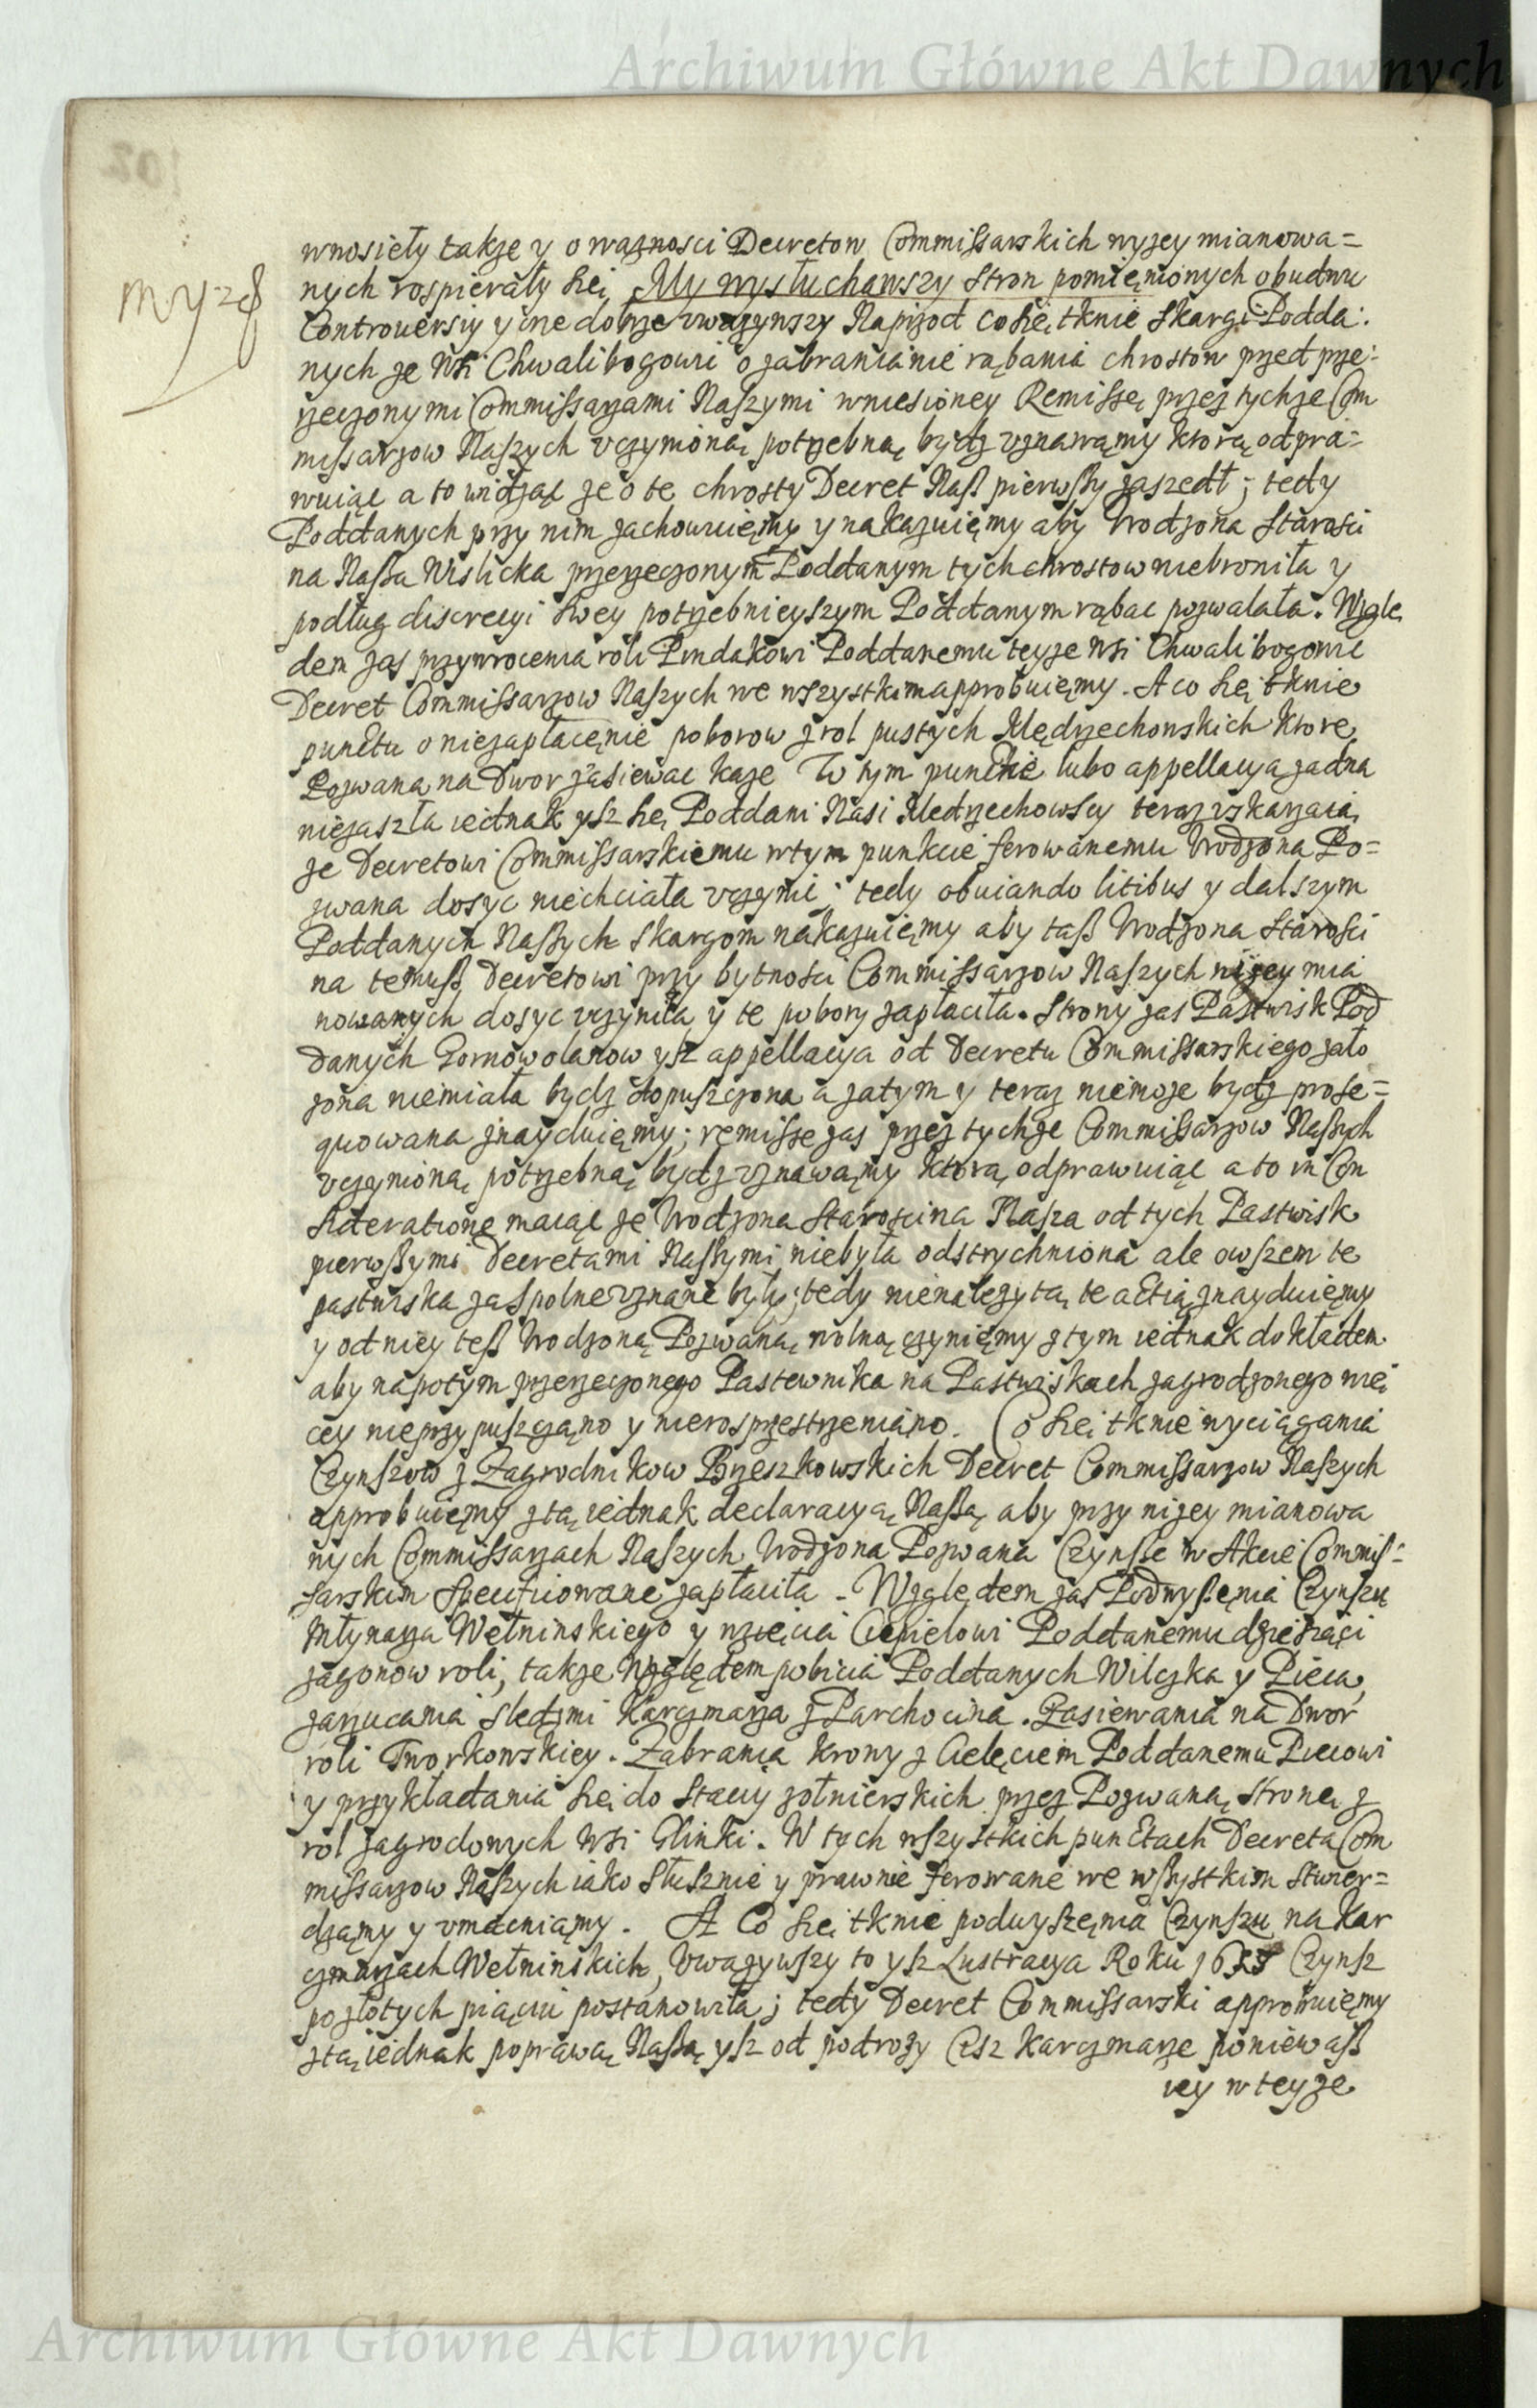 Archiwum Główne Akt Dawnych
wnosieły takze y o waznosci Decretow Commissarskich wyzey mianowa=
nych rospierały się, My wysłuchawszy Stron pomienionych obudwu
Controuersiy y one dobrze vwazywszy Naprzod co się tknie skargi Podda:
nych ze Wsi Chwalibogowi o zabranianie rąbania chrostow przed prze:
rzeczonymi Commissarzami Naszymi wniesioney Remissę przez tychze Com
missarzow Naszych vczynioną potrzebną bydz vznawamy ktorą odpra=
wuiąc a to widząc ze o te chrosty Decret Nasz pierwszy zaszedł; tedy
Poddanych przy nim zachowuięmy y nakazuięmy aby Vrodzona Starosci
na Nassa Wislicka przerzeczonym Poddanym tych chrostow niebroniła y
podług discrecyi swey potrzebnieyszym Poddanym rąbac pozwalała. Wzglę
dem zas przywrocenia roli Pindakowi Poddanemu teyze Wsi Chwalibogowic
Decret Commissarzow Naszych we wszystkim approbuięmy. A co się tknie
punctu o niezapłacęnie poborow z rol pustych Mędrzechowskich ktore
Pozwana na Dwor zasiewac kaze W tym punkcie lubo appellacya zadna
niezaszła iednak ysz się Poddani Nasi Medrzechowscy teraz vskarzaią
ze Decretowi Commissarskiemu w tym punkcie ferowanemu Vrodzona Po=
zwana dosyc niechciała vczynic; tedy obuiando litibus y dalszym
Poddanych Naszych skargom nakazuięmy aby tasz Vrodzona Starosci
na temusz Decretowi przy bytnosci Commissarzow Naszych nizey mia
nowanych dosyc vczyniła y te pobory zapłaciła. Strony zas Pastwisk Pod
danych Gornowolanow ysz appellacya od Decretu Commissarskiego zało
zona niemiała bydz dopuszczona a zatym y teraz niemoze bydz prose=
quowana znayduięmy; remissę zas przez tychze Commissarzow Naszych
vczynioną potrzebną bydz vznawamy ktorą odprawuiąc a to in Con
sideratione maiąc ze Vrodzona Starościna Nasza od tych Pastwisk
pierwszymi Decretami Naszymi niebyła odstrychniona ale owszem te
pastwiska za spolne vznane były; tedy nienalezytą te actią znayduięmy
y od niey tesz Vrodzoną Pozwaną wolną czynięmy z tym iednak dokładem
aby napotym przerzeczonego Pastewnika na Pastwiskach zagrodzonego wię
cey nieprzypuszczano y nierosprzestrzeniano. Co się tknie wyciągania
Czynszow z Zagrodnikow Brzeszkowskich Decret Commissarzow Naszych
approbuięmy z tą iednak declaracyą Naszą aby przy nizey mianowa
nych Commissarzach Naszych Vrodzona Pozwana Czynsze w Akcie Commis=
sarskim specifiowane zapłaciła. Względem zas Podwyszęnia Czynszu
Młynarza Wełninskiego y wzięcia Ciepielowi Poddanemu dziesiąci
zagonow roli, takze względem pobicia Poddanych Wilczka y Pieca,
zarzucania sledzmi Karczmarza z Parchocina. Zasiewania na Dwor
roli Tworkowskiey. Zabrania krowy z Cielęciem Poddanemu Piecowi
y przykładania się do Stacyi zołnierskich przez Pozwaną stronę z
rol zagrodowych Wsi Glinki. W tych wszystkich punctach Decreta Com
missarzow Naszych iako słusznie y prawnie ferowane we wszystkim stwier=
dzamy y vmacniamy. A Co się tknie podwyszęnia Czynszu na Kar
czmarzach Wełninskich, Vwazywszy to ysz Lustracya Roku Czynsz
po złotych piąciu postanowiła; tedy Decret Commissarski approbuięmy
z tą iednak poprawą Naszą ysz od podrozy Cisz karczmarze poniewasz
iey w teyze
Archiwum Główne Akt Dawnych